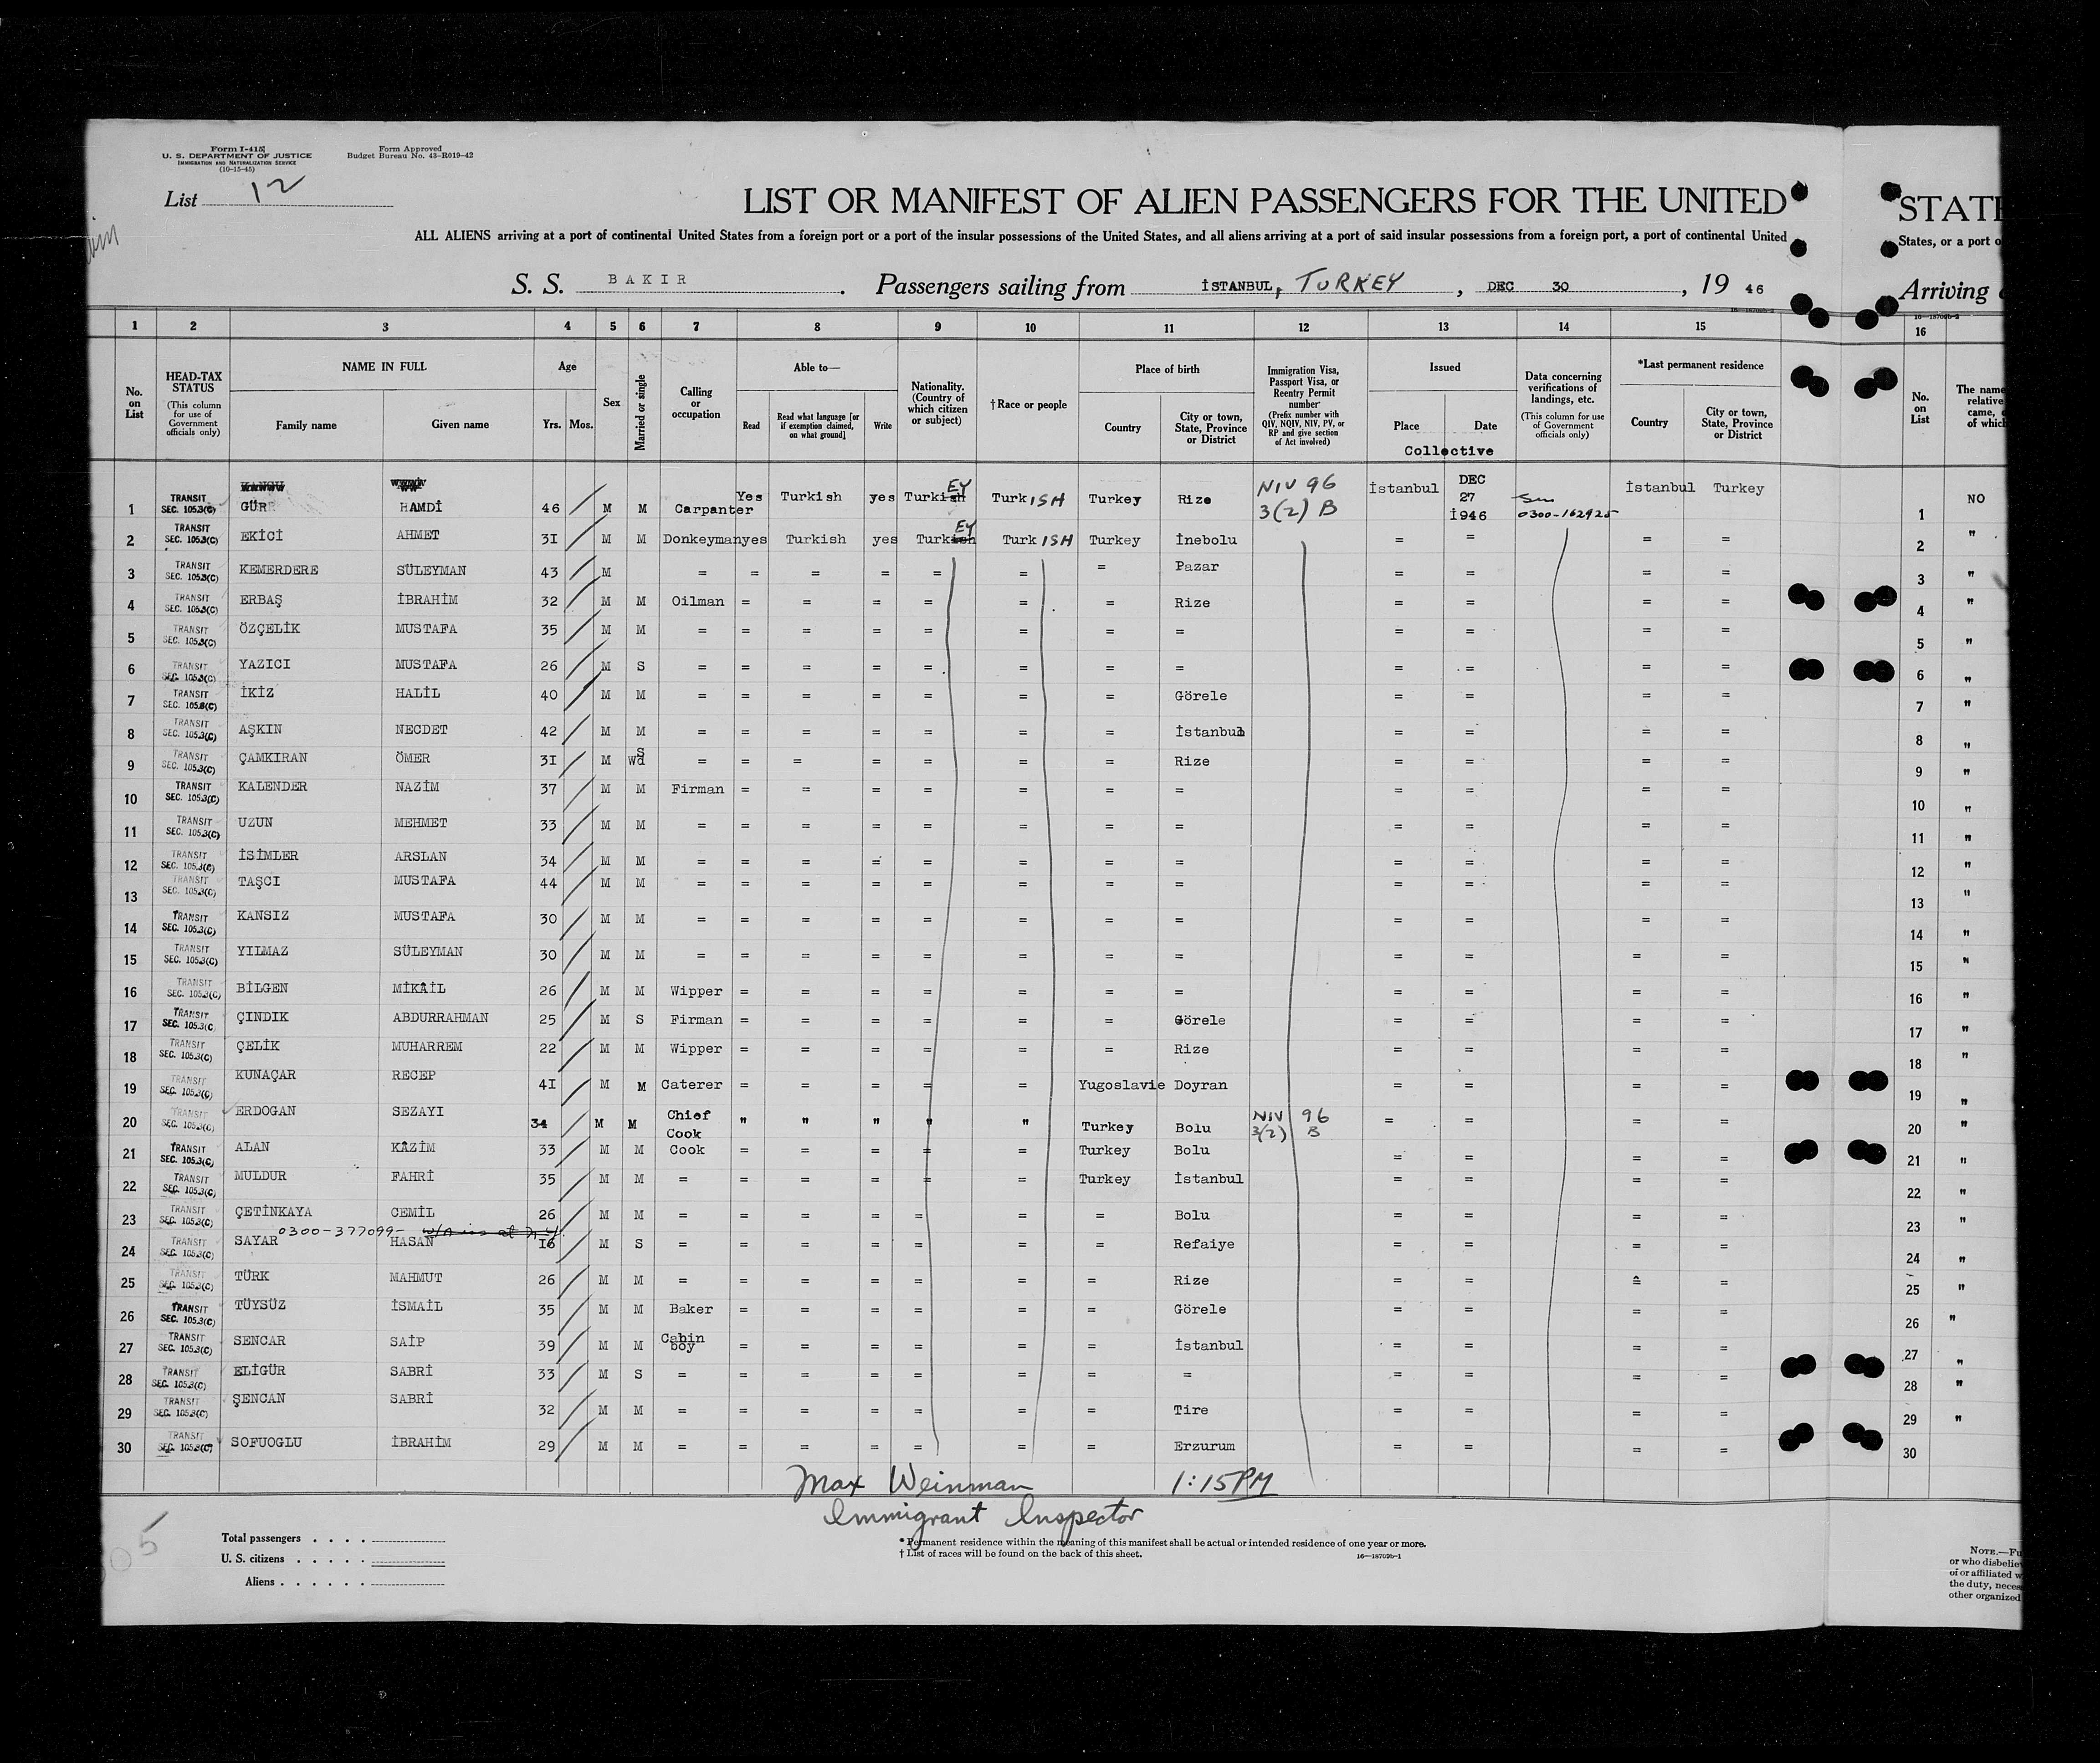 Form I-415
U. S. DEPARTMENT OF JUSTICE
IMMIGRATION AND NATURALIZATION SERVICE
(10-15-45)
Form Approved
Budget Bureau No. 43-R019-42
List 12
LIST OR MANIFEST OF ALIEN PASSENGERS FOR THE UNITED
STATE
ALL ALIENS arriving at a port of continental United States from a foreign port or a port of the insular possessions of the United States, and all aliens arriving at a port of said insular possessions from a foreign port, a port of continental United
States, or a port o
S. S. BAKIR. Passengers sailing from İSTANBUL, TURKEY, DEC 30, 19 46
Arriving
16—18709b-2
1 2 3 4 5 6 7 8 9 10 11 12 13 14 15 16
No. on List
HEAD-TAX STATUS (This column for use of Government officials only)
NAME IN FULL
Family name Given name
Age
Yrs. Mos.
Sex
Married or single
Calling or occupation
Able to—
Read
Read what language [or if exemption claimed, on what ground]
Write
Nationality. (Country of which citizen or subject)
†Race or people
Place of birth
Country
City or town, State, Province or District
Immigration Visa, Passport Visa, or Reentry Permit number (Prefix number with QIV, NQIV, NIV, PV, or RP and give section of Act involved)
Issued
Place Date
Collective
Data concerning verifications of landings, etc. (This column for use of Government officials only)
*Last permanent residence
Country
City or town, State, Province or District
No. on List
The name
relative
came,
of which
1 TRANSIT SEC. 105.3(C) GÜR HAMDİ 46 M M Carpanter Yes Turkish yes Turkish EY TurkISH Turkey Rize NIV 96 3(2) B İstanbul DEC 27 1946 0300-162925 İstanbul Turkey 1 NO
2 TRANSIT SEC. 105.3(C) EKİCİ AHMET 31 M M Donkeyman yes Turkish yes Turkish EY Turk ISH Turkey İnebolu = = = = 2 "
3 TRANSIT SEC. 105.3(C) KEMERDERE SÜLEYMAN 43 M = = = = = = = Pazar = = = = 3 "
4 TRANSIT SEC. 105.3(C) ERBAŞ İBRAHİM 32 M M Oilman = = = = = = Rize = = = = 4 "
5 TRANSIT SEC. 105.3(C) ÖZÇELİK MUSTAFA 35 M M = = = = = = = = = = = = 5 "
6 TRANSIT SEC. 105.3(C) YAZICI MUSTAFA 26 M S = = = = = = = = = = = = 6 "
7 TRANSIT SEC. 105.3(C) İKİZ HALİL 40 M M = = = = = = = Görele = = = = 7 "
8 TRANSIT SEC. 105.3(C) AŞKIN NECDET 42 M M = = = = = = = İstanbul = = = = 8 "
9 TRANSIT SEC. 105.3(C) ÇAMKIRAN ÖMER 31 M S Wd = = = = = = = Rize = = = = 9 "
10 TRANSIT SEC. 105.3(C) KALENDER NAZİM 37 M M Firman = = = = = = = = = = = 10 "
11 TRANSIT SEC. 105.3(C) UZUN MEHMET 33 M M = = = = = = = = = = = = 11 "
12 TRANSIT SEC. 105.3(C) İSİMLER ARSLAN 34 M M = = = = = = = = = = = = 12 "
13 TRANSIT SEC. 105.3(C) TAŞCI MUSTAFA 44 M M = = = = = = = = = = = = 13 "
14 TRANSIT SEC. 105.3(C) KANSIZ MUSTAFA 30 M M = = = = = = = = = = = = 14 "
15 TRANSIT SEC. 105.3(C) YILMAZ SÜLEYMAN 30 M M = = = = = = = = = = = = 15 "
16 TRANSIT SEC. 105.3(C) BİLGEN MİKÂİL 26 M M Wipper = = = = = = = = = = = 16 "
17 TRANSIT SEC. 105.3(C) ÇINDIK ABDURRAHMAN 25 M S Firman = = = = = = Görele = = = = 17 "
18 TRANSIT SEC. 105.3(C) ÇELİK MUHARREM 22 M M Wipper = = = = = = Rize = = = = 18 "
19 TRANSIT SEC. 105.3(C) KUNAÇAR RECEP 41 M M Caterer = = = = = Yugoslavie Doyran = = = = 19 "
20 TRANSIT SEC. 105.3(C) ERDOGAN SEZAYI 34 M M Chief Cook " " " " " Turkey Bolu NIV 96 3(2) B = = = = 20 "
21 TRANSIT SEC. 105.3(C) ALAN KÂZİM 33 M M Cook = = = = = Turkey Bolu = = = = 21 "
22 TRANSIT SEC. 105.3(C) MULDUR FAHRİ 35 M M = = = = = = Turkey İstanbul = = = = 22 "
23 TRANSIT SEC. 105.3(C) ÇETİNKAYA CEMİL 26 M M = = = = = = = Bolu = = = = 23 "
0300-377099-
24 TRANSIT SEC. 105.3(C) SAYAR HASAN 16 M S = = = = = = = Refaiye = = = = 24 "
25 TRANSIT SEC. 105.3(C) TÜRK MAHMUT 26 M M = = = = = = = Rize = = = = 25 "
26 TRANSIT SEC. 105.3(C) TÜYSÜZ İSMAİL 35 M M Baker = = = = = = Görele = = = = 26 "
27 TRANSIT SEC. 105.3(C) SENCAR SAİP 39 M M Cabin boy = = = = = = İstanbul = = = = 27 "
28 TRANSIT SEC. 105.3(C) ELİGÜR SABRİ 33 M S = = = = = = = = = = = = 28 "
29 TRANSIT SEC. 105.3(C) ŞENCAN SABRİ 32 M M = = = = = = = Tire = = = = 29 "
30 TRANSIT SEC. 105.3(C) SOFUOGLU İBRAHİM 29 M M = = = = = = = Erzurum = = = = 30
Max Weinman 1:15PM
Immigrant Inspector
Total passengers
U. S. citizens
Aliens
* Permanent residence within the meaning of this manifest shall be actual or intended residence of one year or more.
† List of races will be found on the back of this sheet.
16—18709b-1
NOTE.—Fu
or who disbelie
of or affiliated w
the duty, neces
other organized